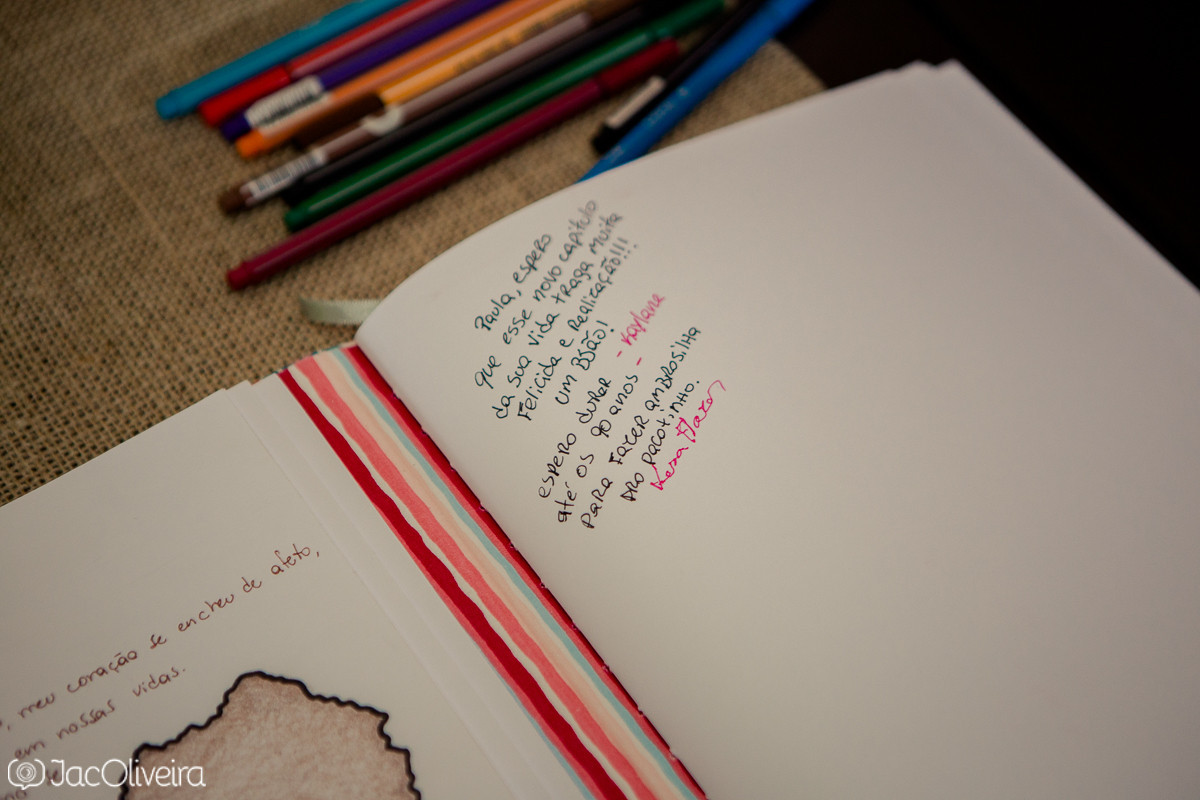 Paula, espero
que esse novo capítulo
da sua vida traga muita
Felicida e Realização!!!
um BJSÃO! - Kaylane -
espero durar
até os 90 anos
para fazer ambrosilha
pro pacotinho.
meu coração se encheu de afeto,
em nossas vidas.
JacOliveira